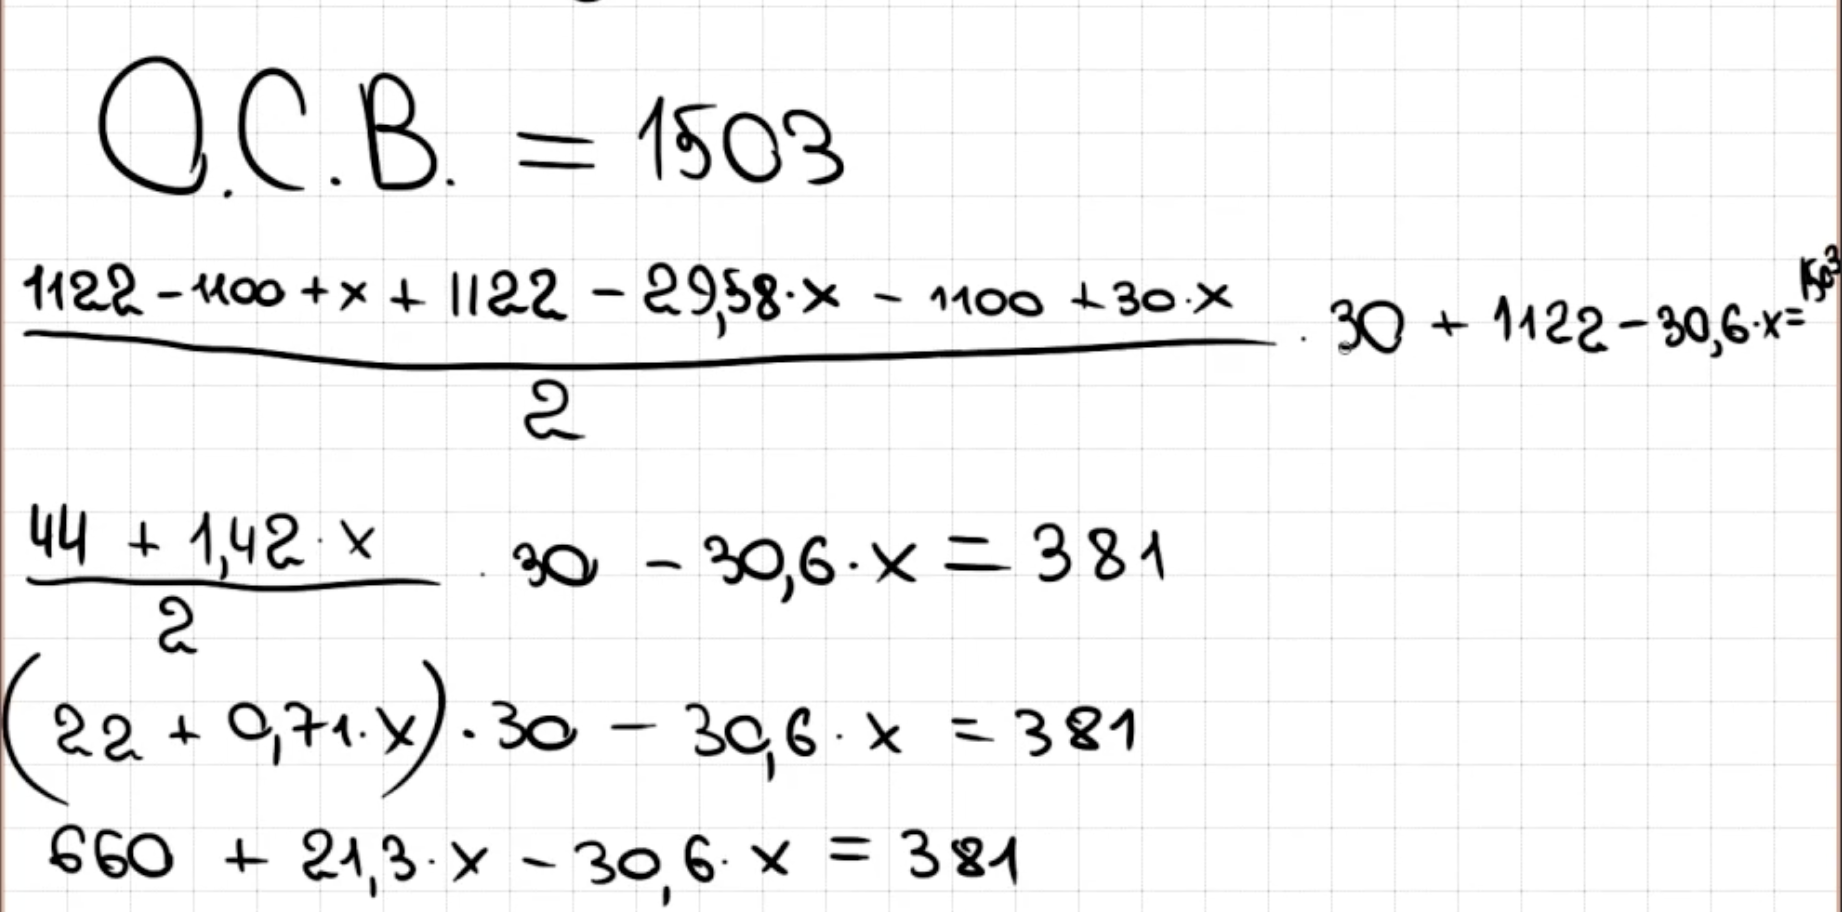 О.С.В. = 1503
(1122 - 1100 + x + 1122 - 29,58·x - 1100 + 30·x)/2 · 30 + 1122 - 30,6·x = 1503
(44 + 1,42·x)/2 · 30 - 30,6·x = 381
(22 + 0,71·x)·30 - 30,6·x = 381
660 + 21,3·x - 30,6·x = 381